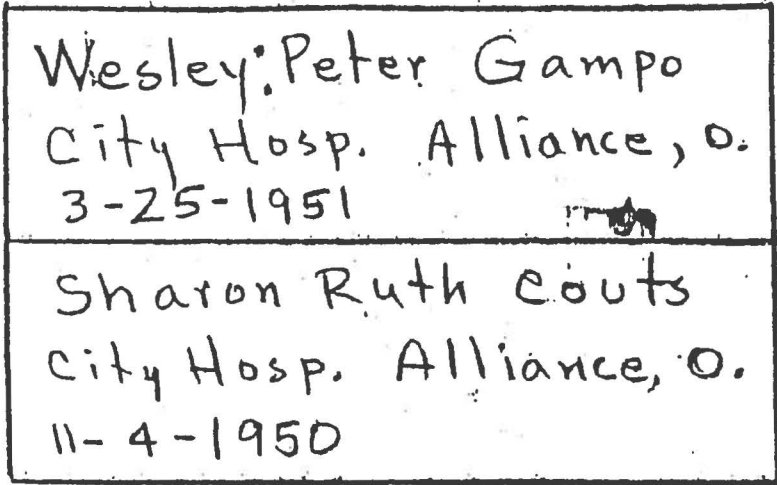 Wesley Peter Gampo
City Hosp. Alliance, O.
3-25-1951
Sharon Ruth Couts
City Hosp. Alliance, O.
11-4-1950